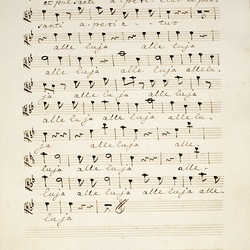 et pulsanti a-peri-e-tur et pul-
santi a-perie-tur
alle luja alle
luja alle luja allelu-
ja alle lu ja alle
luja alle luja
alle luja alle lu-
ja alle luja alle
luja alle luja alle
luja alle luja alle
luja